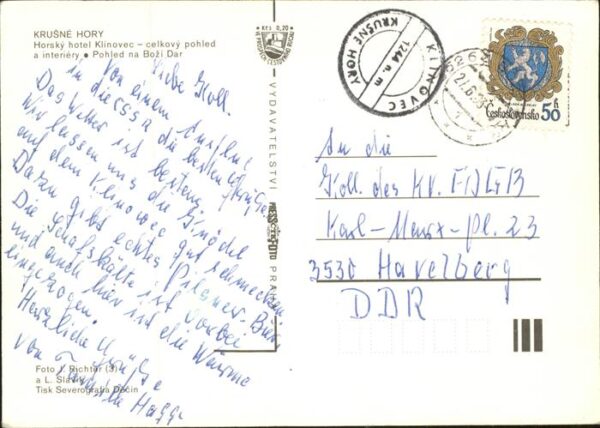 KRUŠNÉ HORY
Horský hotel Klínovec – celkový pohled
a interiéry • Pohled na Boží Dar
Kčs 0,70
VYDAVATELSTVÍ
PRESSFOTO
PRAHA
KLÍNOVEC
1244 n. m.
KRUŠNÉ HORY
Československo
50 h
Liebe Koll.
Von einem Ausflug
in die ČSSR die besten Grüße
Das Wetter ist bestens
Wir lassen uns die Knödel
auf dem Klinovec gut schmecken
Dazu gibts echtes Pilsner Bier
Die Schafskälte ist vorbei
und auch hier ist die Wärme
eingezogen.
Herzliche Grüße
von Familie
An die
Koll. des KV. FDGB
Karl-Marx-Pl. 23
3530 Havelberg
DDR
Foto J. Richter (3)
a L. Slavík
Tisk Severografia Děčín